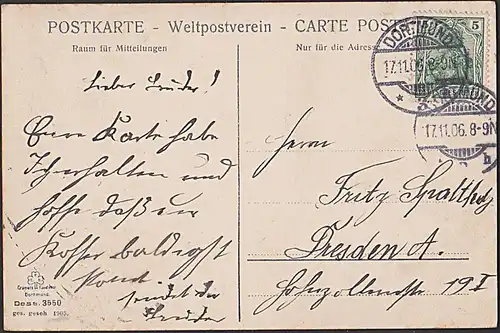 POSTKARTE - Weltpostverein - CARTE POST
Raum für Mitteilungen
Nur für die Adresse
5
DORTMUND
17.11.06. 8-9N
DORTMUND
17.11.06. 8-9N
b
Lieber Bruder!
Eure Karte habe
Ich erhalten und
hoffe daß der
Koffer baldigst
kommt.
sendet der
Bruder
Herrn
Fritz Spalteholz
Dresden A.
Hohezollernstr 19 I
Dortmund.
Dess. 3650
ges. gesch. 1905.